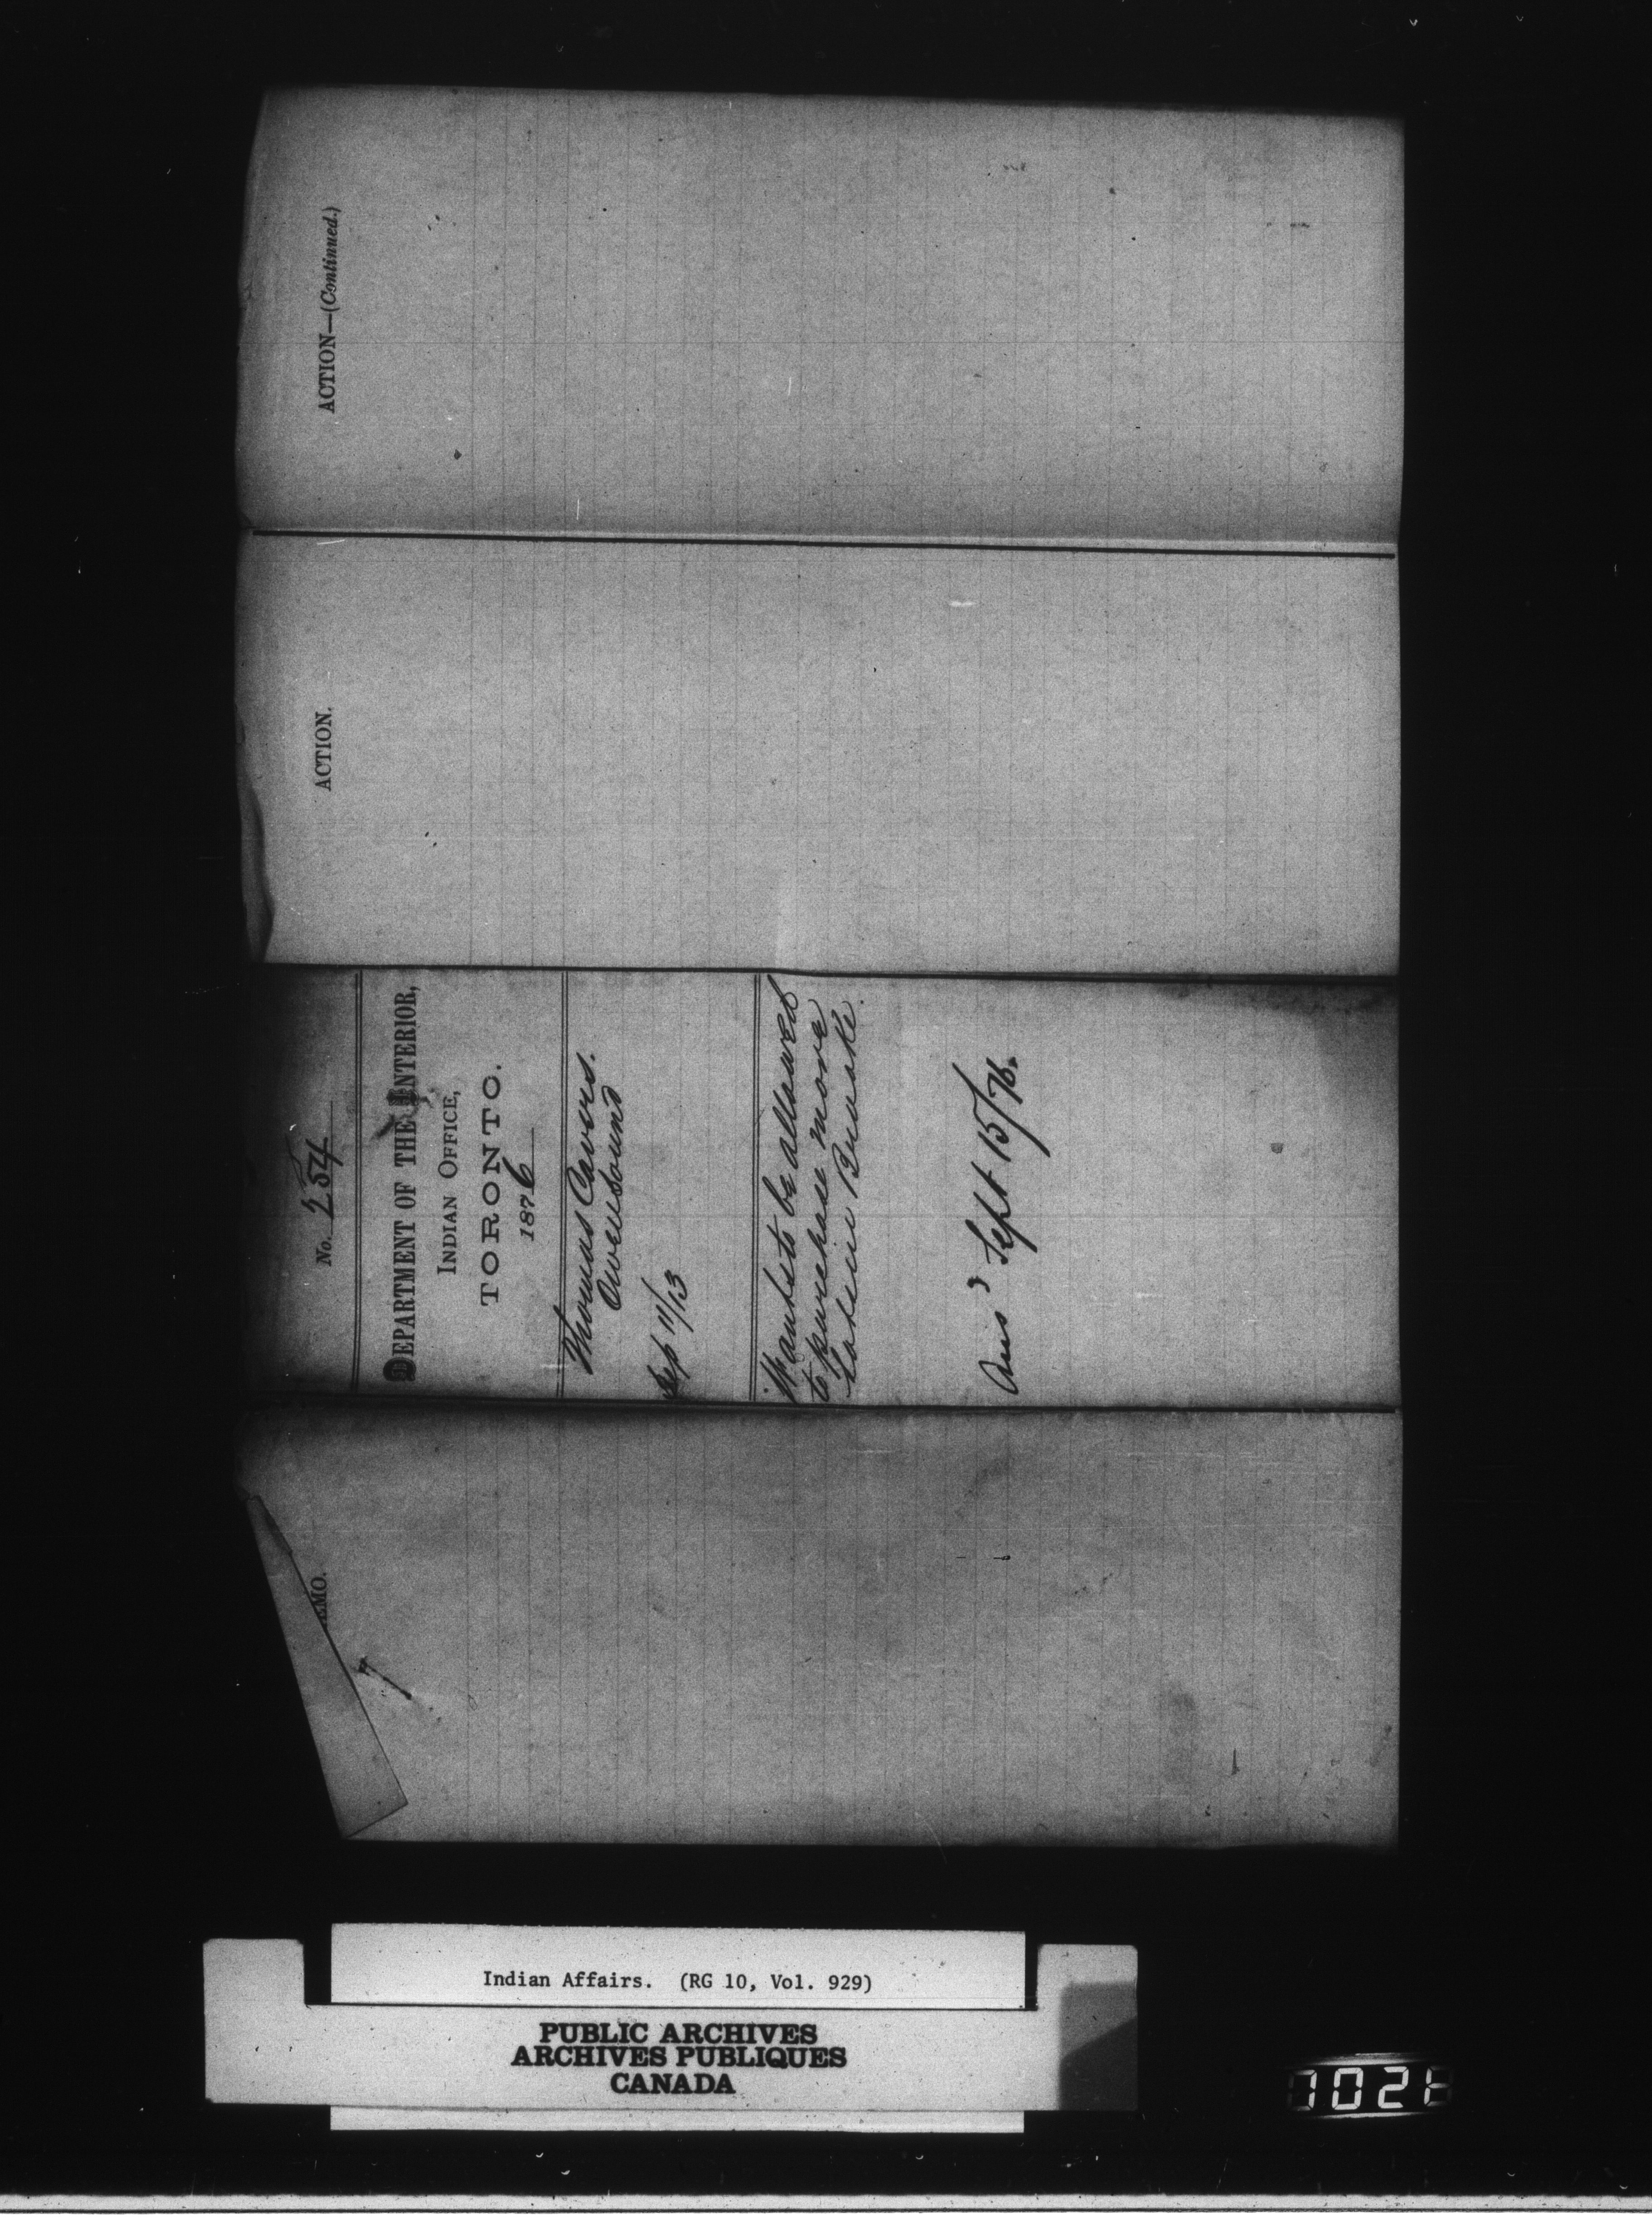 ACTION—(Continued.)
ACTION.
No. 254
DEPARTMENT OF THE INTERIOR,
INDIAN OFFICE,
TORONTO.
1876
Thomas Cavers.
Owen Sound
Sep 11/13
Wants to be allowed
to purchase more
Lots in Brooke.
Ans^d Sept 15/76.
EMO.
Indian Affairs. (RG 10, Vol. 929)
PUBLIC ARCHIVES
ARCHIVES PUBLIQUES
CANADA